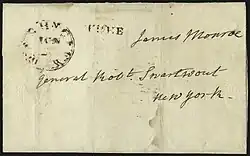 FREE
James Monroe
General Robt. Swartwout
New York.